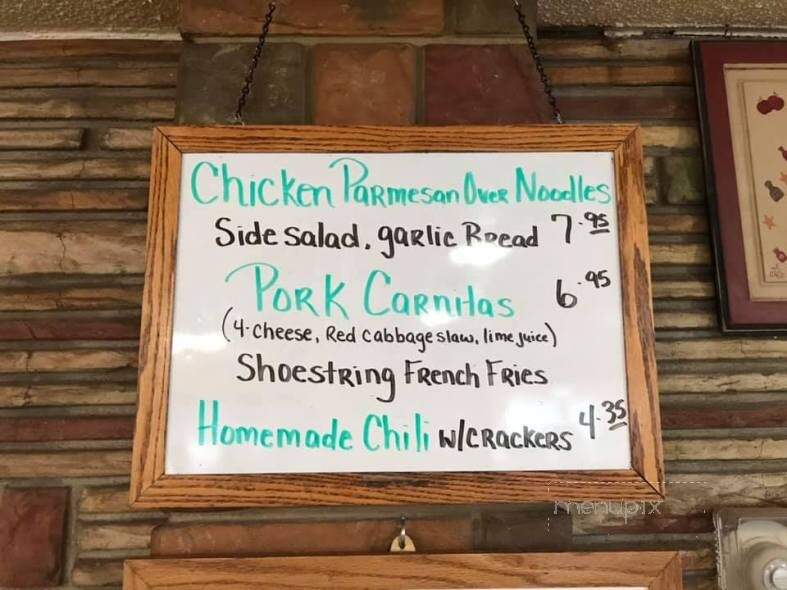 Chicken Parmesan Over Noodles
Side salad, garlic Bread 7.95
Pork Carnitas 6.95
(4-cheese, Red cabbage slaw, lime juice)
Shoestring French Fries
Homemade Chili w/crackers 4.35
menupix